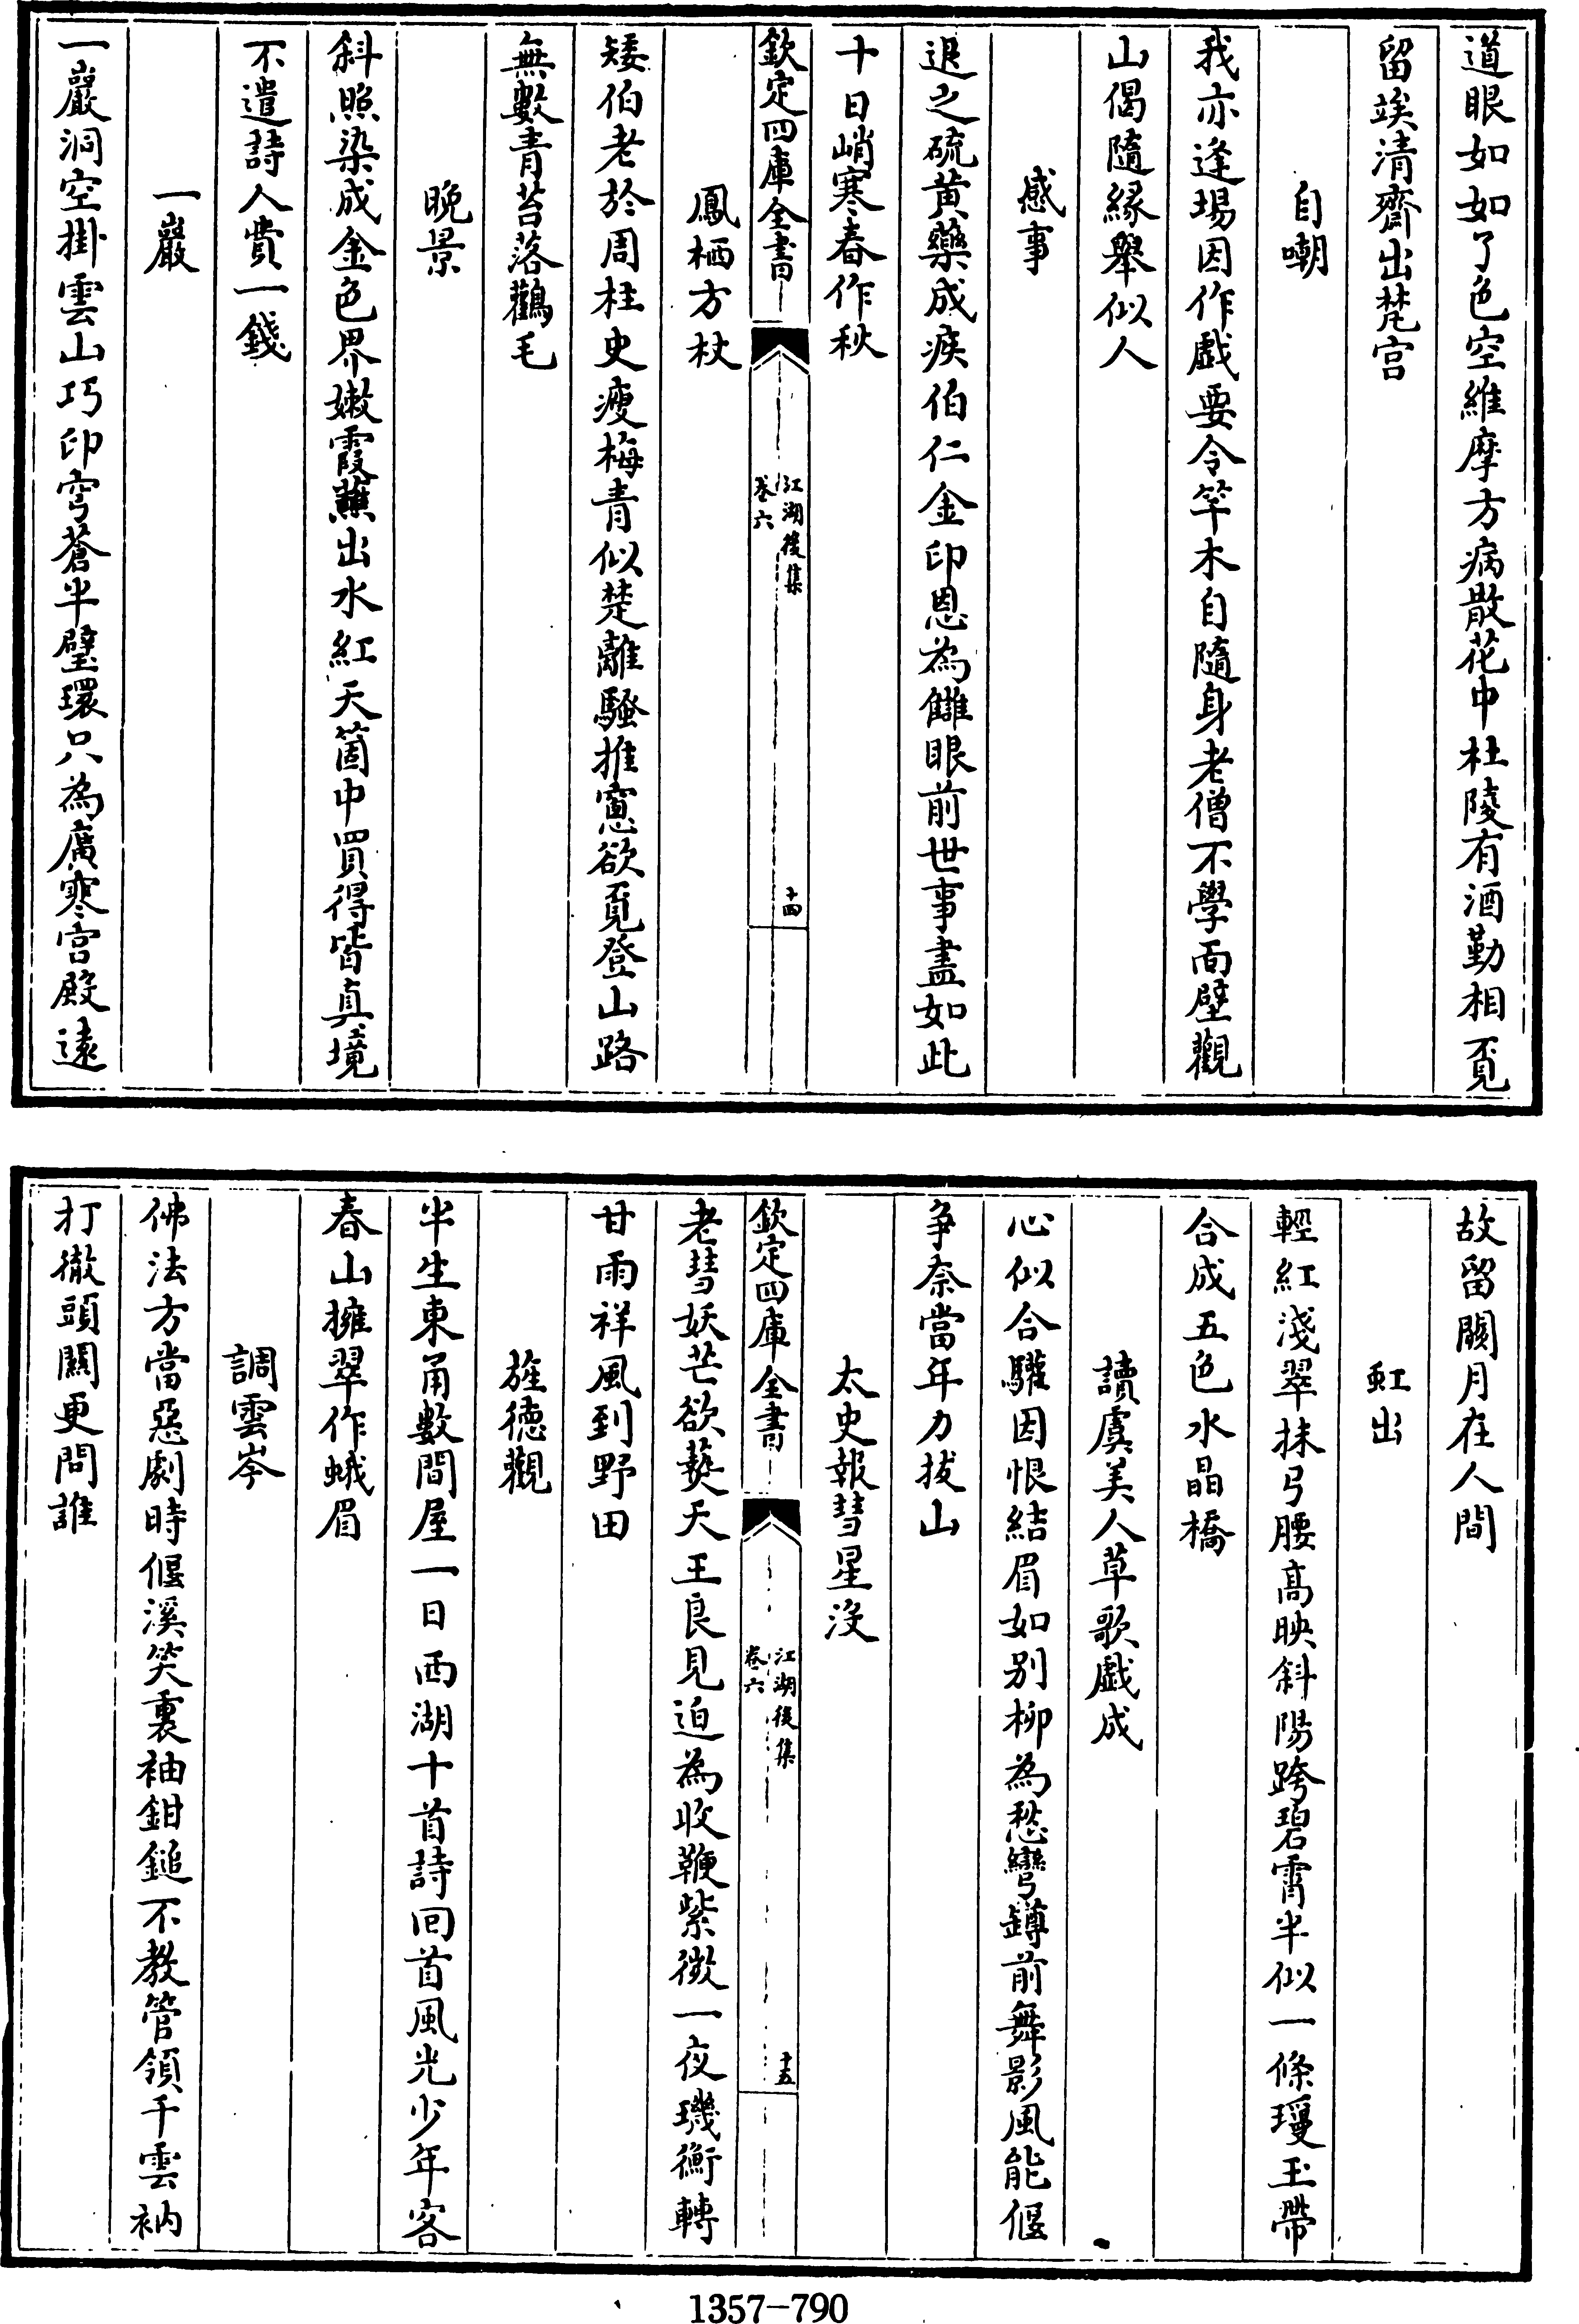 道眼如如了色空維摩方病散花中杜陵有酒勤相覓
留竢清齋出梵宫
自嘲
我亦逢場因作戲要令竿木自隨身老僧不學面壁觀
山偈隨縁舉似人
感事
退之硫黄藥成疾伯仁金印恩為讎眼前世事盡如此
十日峭寒春作秋
欽定四庫全書
江湖後集
卷六
十四
鳳栖方杖
矮伯老於周柱史瘦梅青似楚離騷推窻欲覓登山路
無數青苔落鸛毛
晚景
斜照染成金色界嫩霞蘸出水紅天箇中買得皆真境
不遣詩人費一錢
一巖
一巖洞空掛雲山巧印穹蒼半璧環只為廣寒宫殿逺
故留闕月在人間
虹出
輕紅淺翠抹弓腰髙映斜陽跨碧霄半似一條瓊玉帶
合成五色水晶橋
讀虞美人草歌戲成
心似合驩因恨結眉如别柳為愁彎罇前舞影風能偃
争奈當年力拔山
太史報彗星沒
欽定四庫全書
江湖後集
卷六
十五
老彗妖芒欲爇天王良見迫為收鞭紫微一夜璣衡轉
甘雨祥風到野田
旌徳觀
半生東甬數間屋一日西湖十首詩回首風光少年客
春山擁翠作蛾眉
調雲岑
佛法方當惡劇時偃溪笑裏袖鉗鎚不教管領千雲衲
打徹頭關更問誰
1357-790